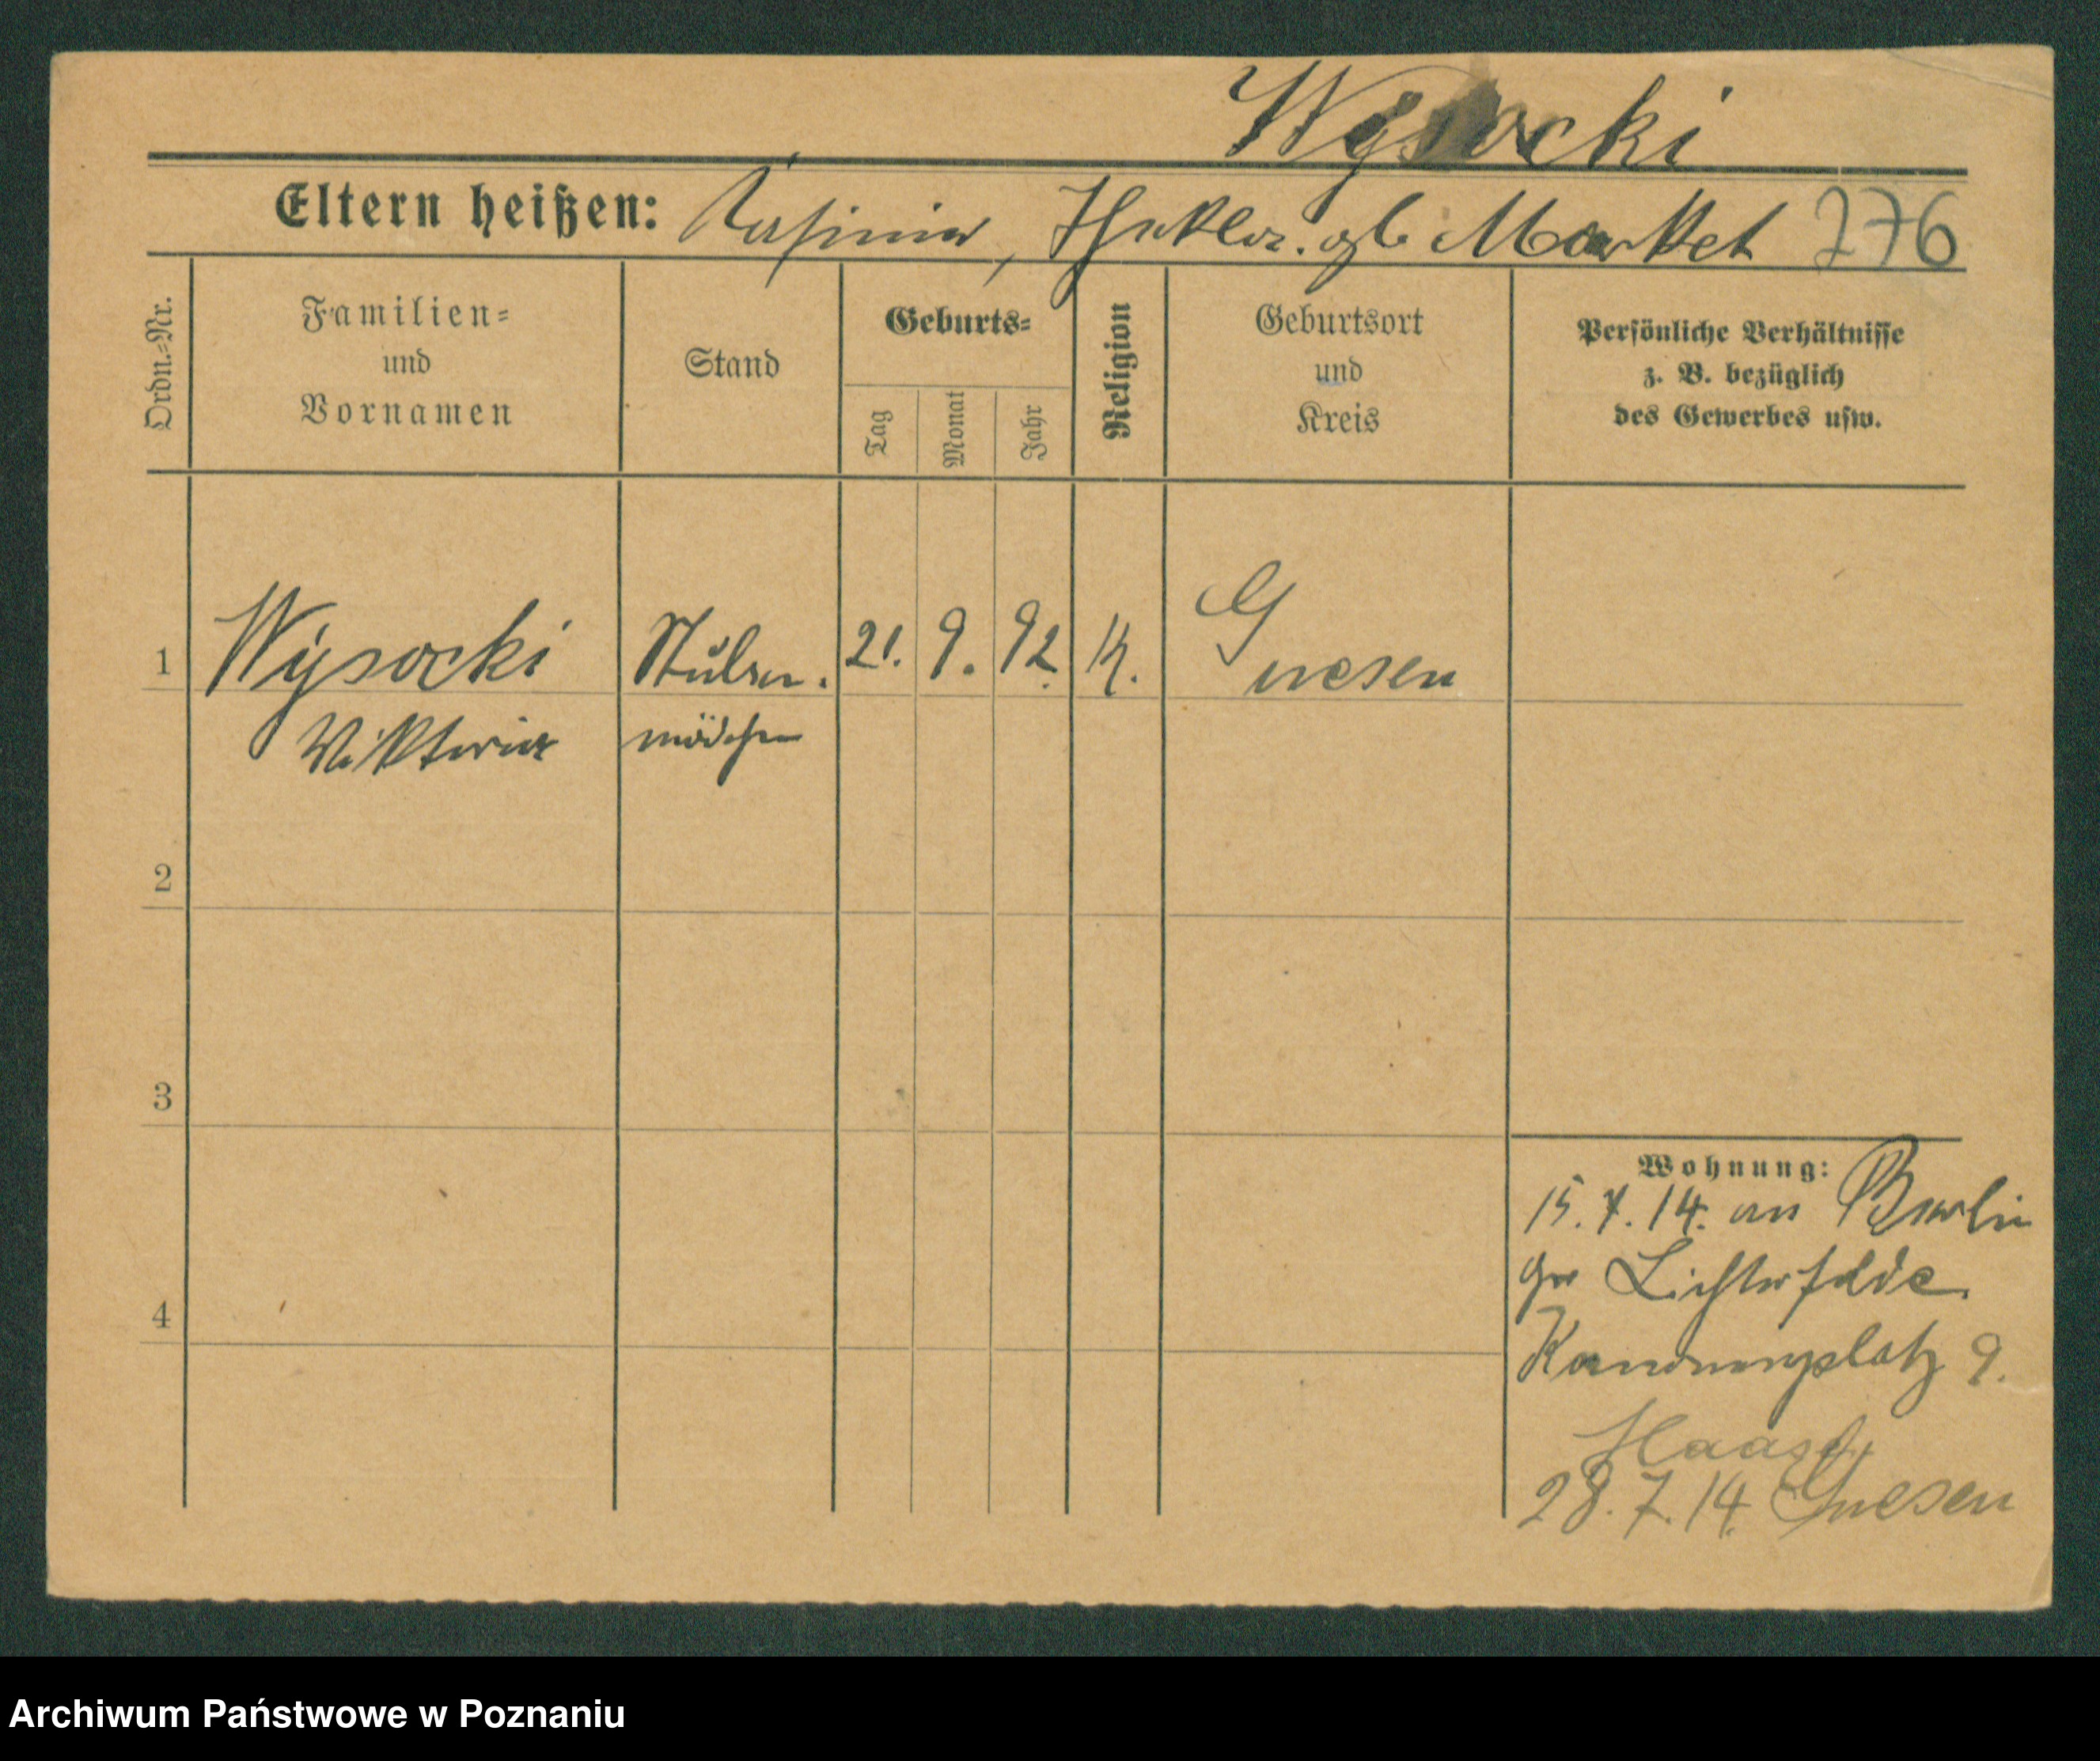 Wysocki
Eltern heißen: Kasimir, Thekla. gb Market 276
Ordn.=Nr.
Familien=
und
Vornamen
Stand
Geburts=
Tag
Monat
Jahr
Religion
Geburtsort
und
Kreis
Persönliche Verhältnisse
z. B. bezüglich
des Gewerbes usw.
1 Wysocki Stuben. 21. 9. 92. K. Gnesen
Viktoria mädchen
2
3
4
Wohnung:
15. 7. 14. an Berlin
gr Lichterfelde
platz 9.
Haase
28. 7. 14. Gnesen
Archiwum Państwowe w Poznaniu